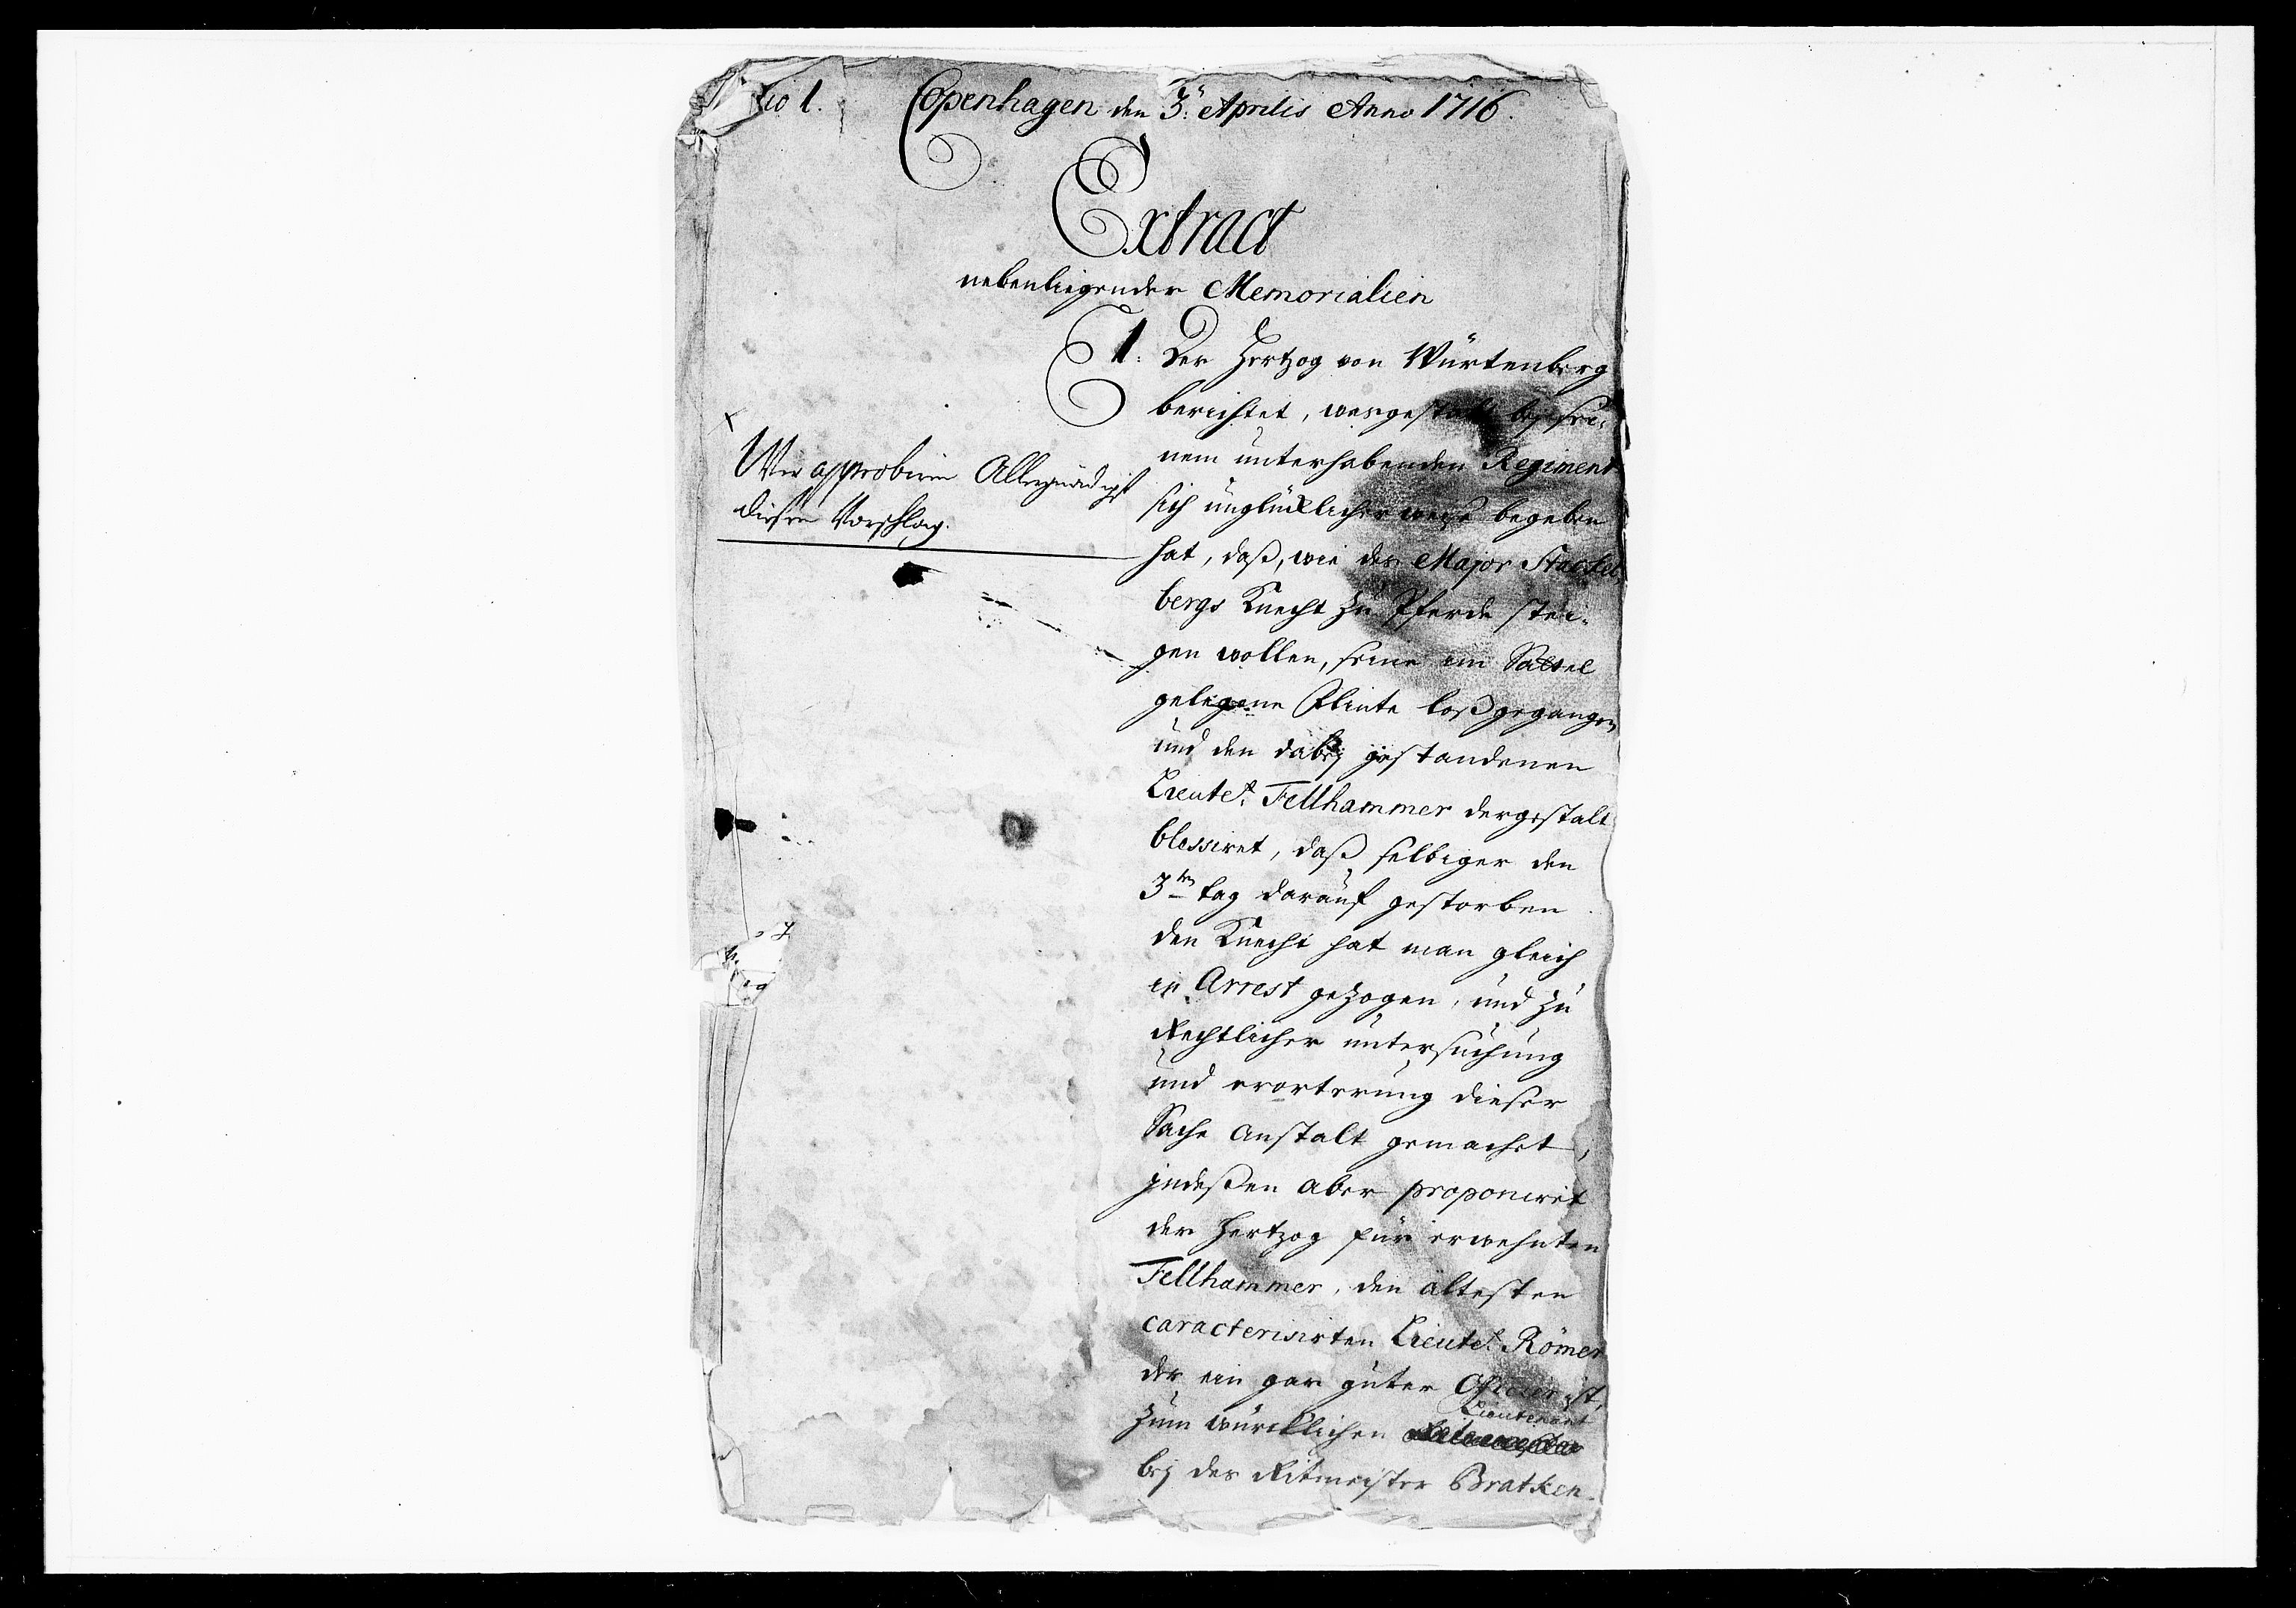 No 1.
Copenhagen den 3: Aprilis Anno 1716.
Extract
nebenliegender Memorialien
1. Der Hertzog von Würtenberg
berichtet, wasgestalt bey sei-
nem unterhabenden Regiment
sich unglücklicher weise begeben
hat, daß, wie des Major Stackel
bergs Knecht zu Pferde stei-
gen wollen, seine im Sattel
gelegene Flinte loßgegangen
und den dabey gestandenen
Lieutet. Fellhammer dergestalt
blessiret, daß selbiger den
3ten tag darauf gestorben
den Knecht hat man gleich
in Arrest gezogen, und zu
Rechtlicher untersuchung
und erorterung dieser
Sache anstalt gemachet,
indeßen aber proponiret
der Hertzog für erwehnten
Fellhammer, den ältesten
caracterisirten Lieutet. Römer
der ein gar guter Officier ist,
zum würcklichen Lieutenant
bey des Ritmeister Bratken-
Wir approbiren Allergnädigst
diesen Vorschlag.